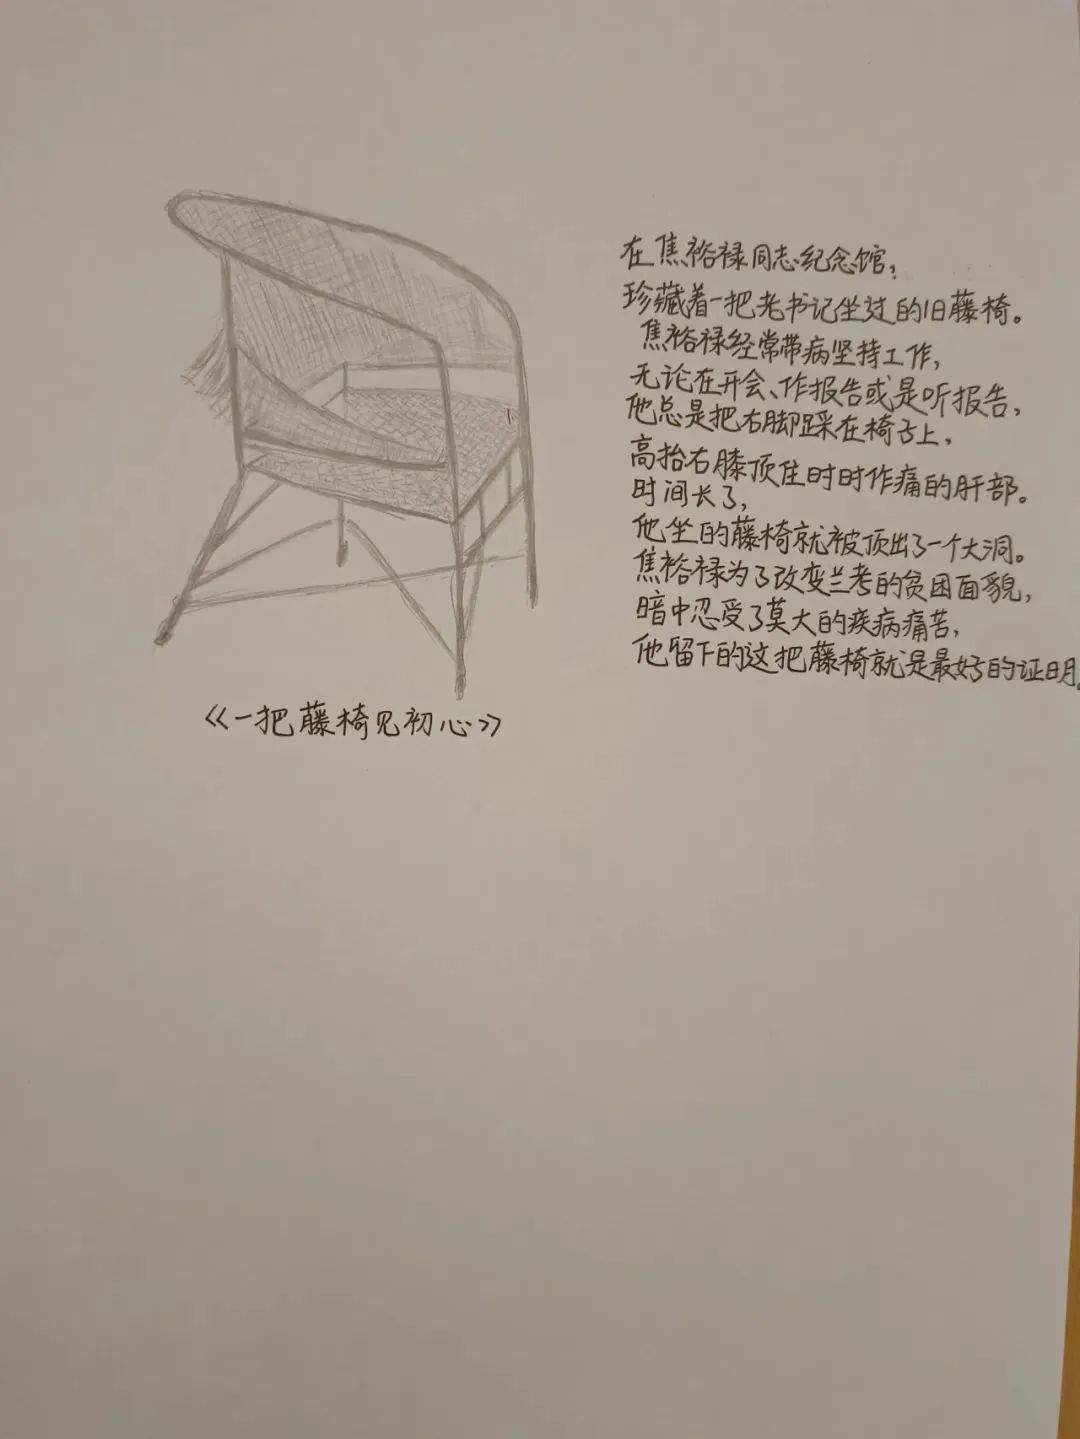 在焦裕禄同志纪念馆,
珍藏着一把老书记坐过的旧藤椅。
焦裕禄经常带病坚持工作,
无论在开会、作报告或是听报告,
他总是把右脚踩在椅子上,
高抬右膝顶住时时作痛的肝部。
时间长了,
他坐的藤椅就被顶出了一个大洞。
焦裕禄为了改变兰考的贫困面貌,
暗中忍受了莫大的疾病痛苦,
他留下的这把藤椅就是最好的证明。
《一把藤椅见初心》